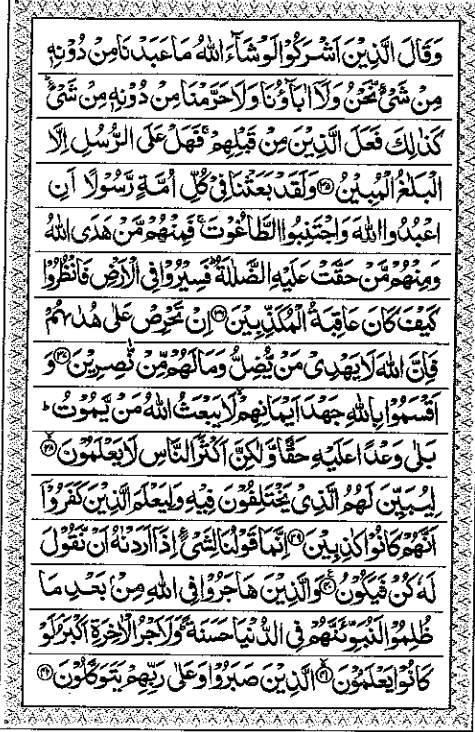 وَقَالَ الَّذِيْنَ اَشْرَكُوْا لَوْ شَآءَ اللّٰهُ مَا عَبَدْنَا مِنْ دُوْنِهٖ
مِنْ شَیْءٍ نَّحْنُ وَلَاۤ اٰبَآؤُنَا وَلَا حَرَّمْنَا مِنْ دُوْنِهٖ مِنْ شَیْءٍ ؕ
كَذٰلِكَ فَعَلَ الَّذِيْنَ مِنْ قَبْلِهِمْ ۚ فَهَلْ عَلَی الرُّسُلِ اِلَّا
الْبَلٰغُ الْمُبِيْنُ ﴿۳۵﴾ وَلَقَدْ بَعَثْنَا فِیْ كُلِّ اُمَّةٍ رَّسُوْلًا اَنِ
اعْبُدُوا اللّٰهَ وَاجْتَنِبُوا الطَّاغُوْتَ ۚ فَمِنْهُمْ مَّنْ هَدَی اللّٰهُ
وَمِنْهُمْ مَّنْ حَقَّتْ عَلَيْهِ الضَّلٰلَةُ ؕ فَسِيْرُوْا فِی الْاَرْضِ فَانْظُرُوْا
كَيْفَ كَانَ عَاقِبَةُ الْمُكَذِّبِيْنَ ﴿۳۶﴾ اِنْ تَحْرِصْ عَلٰی هُدٰىهُمْ
فَاِنَّ اللّٰهَ لَا يَهْدِیْ مَنْ يُّضِلُّ وَمَا لَهُمْ مِّنْ نّٰصِرِيْنَ ﴿۳۷﴾ وَ
اَقْسَمُوْا بِاللّٰهِ جَهْدَ اَيْمَانِهِمْ ۙ لَا يَبْعَثُ اللّٰهُ مَنْ يَّمُوْتُ ؕ
بَلٰی وَعْدًا عَلَيْهِ حَقًّا وَّلٰكِنَّ اَكْثَرَ النَّاسِ لَا يَعْلَمُوْنَ ﴿۳۸﴾
لِيُبَيِّنَ لَهُمُ الَّذِیْ يَخْتَلِفُوْنَ فِيْهِ وَلِيَعْلَمَ الَّذِيْنَ كَفَرُوْۤا
اَنَّهُمْ كَانُوْا كٰذِبِيْنَ ﴿۳۹﴾ اِنَّمَا قَوْلُنَا لِشَیْءٍ اِذَاۤ اَرَدْنٰهُ اَنْ نَّقُوْلَ
لَهٗ كُنْ فَيَكُوْنُ ﴿۴۰﴾ وَالَّذِيْنَ هَاجَرُوْا فِی اللّٰهِ مِنْۢ بَعْدِ مَا
ظُلِمُوْا لَنُبَوِّئَنَّهُمْ فِی الدُّنْيَا حَسَنَةً ؕ وَلَاَجْرُ الْاٰخِرَةِ اَكْبَرُ ۘ لَوْ
كَانُوْا يَعْلَمُوْنَ ﴿۴۱﴾ الَّذِيْنَ صَبَرُوْا وَعَلٰی رَبِّهِمْ يَتَوَكَّلُوْنَ ﴿۴۲﴾